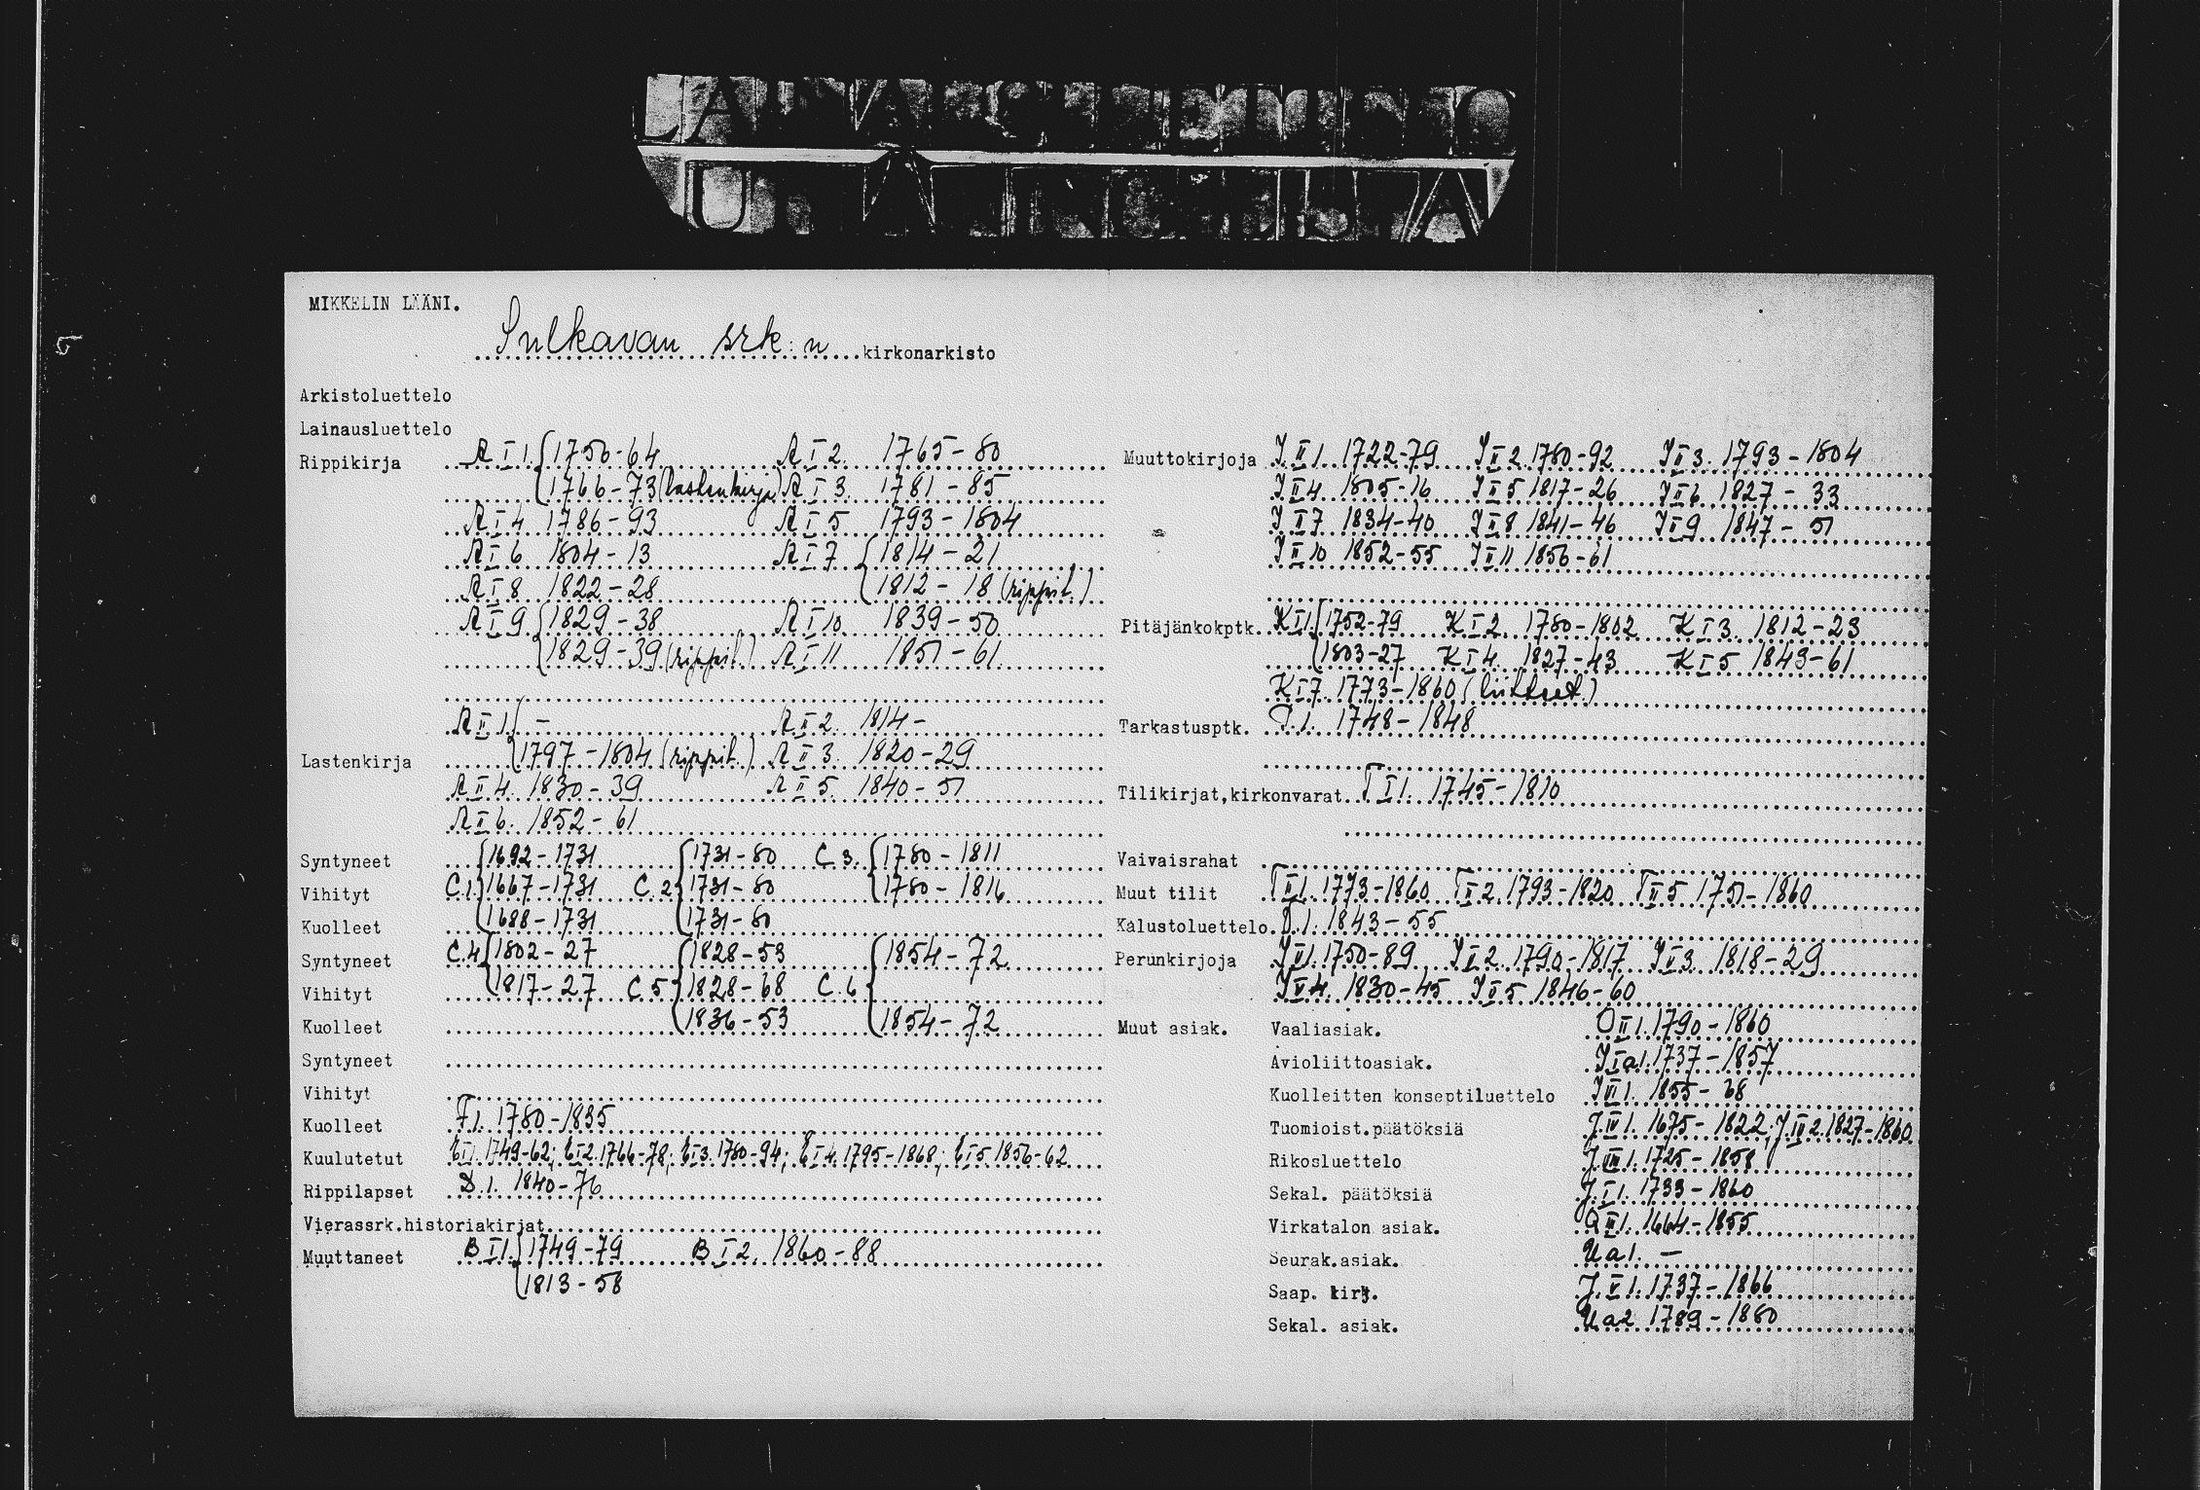 MIKKELIN LÄÄNI.
Sulkavan srk:n kirkonarkisto
Arkistoluettelo
Lainausluettelo
Rippikirja A I 1. 1750-64 A I 2. 1765-80
1766-73 (lastenkirja) A I 3. 1781-85
A I 4 1786-93 A I 5 1793-1804
A I 6 1804-13 A I 7 1814-21
A I 8 1822-28 1812-18 (rippil.)
A I 9 1829-38 A I 10 1839-50
1829-39 (rippil.) A I 11 1851-61
A II 1. - A II 2. 1814-
Lastenkirja 1797-1804 (rippil.) A II 3. 1820-29
A II 4. 1830-39 A II 5. 1840-51
A II 6. 1852-61
Syntyneet 1692-1731 1731-80 C.3. 1780-1811
Vihityt C.1. 1667-1731 C.2 1731-80 1780-1816
Kuolleet 1688-1731 1731-80
Syntyneet C.4 1802-27 1828-53 1854-72
Vihityt 1817-27 C.5 1828-68 C.6
Kuolleet 1836-53 1854-72
Syntyneet
Vihityt
Kuolleet F1. 1780-1835
Kuulutetut E I 1. 1749-62; E I 2. 1766-78; E I 3. 1780-94; E I 4. 1795-1868; E I 5. 1856-62
Rippilapset D.1. 1840-76
Vierassrk.historiakirjat
Muuttaneet B I 1. 1749-79 B I 2. 1860-88
1813-58
Muuttokirjoja J II 1. 1722-79 J II 2. 1780-92 J II 3. 1793-1804
J II 4 1805-16 J II 5 1817-26 J II 6. 1827-33
J II 7 1834-40 J II 8 1841-46 J II 9 1847-51
J II 10 1852-55 J II 11 1856-61
Pitäjänkokptk. K I 1. 1752-79 K I 2. 1780-1802 K I 3. 1812-23
1803-27 K I 4. 1827-43 K I 5 1849-61
K I 7. 1773-1860 (liitteet)
Tarkastusptk. 1. 1748-1848
Tilikirjat,kirkonvarat T I 1. 1745-1810
Vaivaisrahat
Muut tilit T II 1. 1773-1860 T II 2. 1793-1820 T II 5 1751-1860
Kalustoluettelo 1. 1843-55
Perunkirjoja 1. 1750-89 2. 1790-1817 3. 1818-29
4. 1830-45 5. 1846-60
Muut asiak. Vaaliasiak. O II 1. 1790-1860
Avioliittoasiak. J I a 1. 1737-1857
Kuolleitten konseptiluettelo 1. 1855-68
Tuomioist.päätöksiä 1. 1675-1822; 2. 1827-1860
Rikosluettelo 1. 1725-1858
Sekal. päätöksiä J I 1. 1733-1860
Virkatalon asiak. 1. 1664-1855
Seurak.asiak. U a 1. -
Saap. kirj. J. V 1. 1737-1866
Sekal. asiak. U a 2 1789-1880